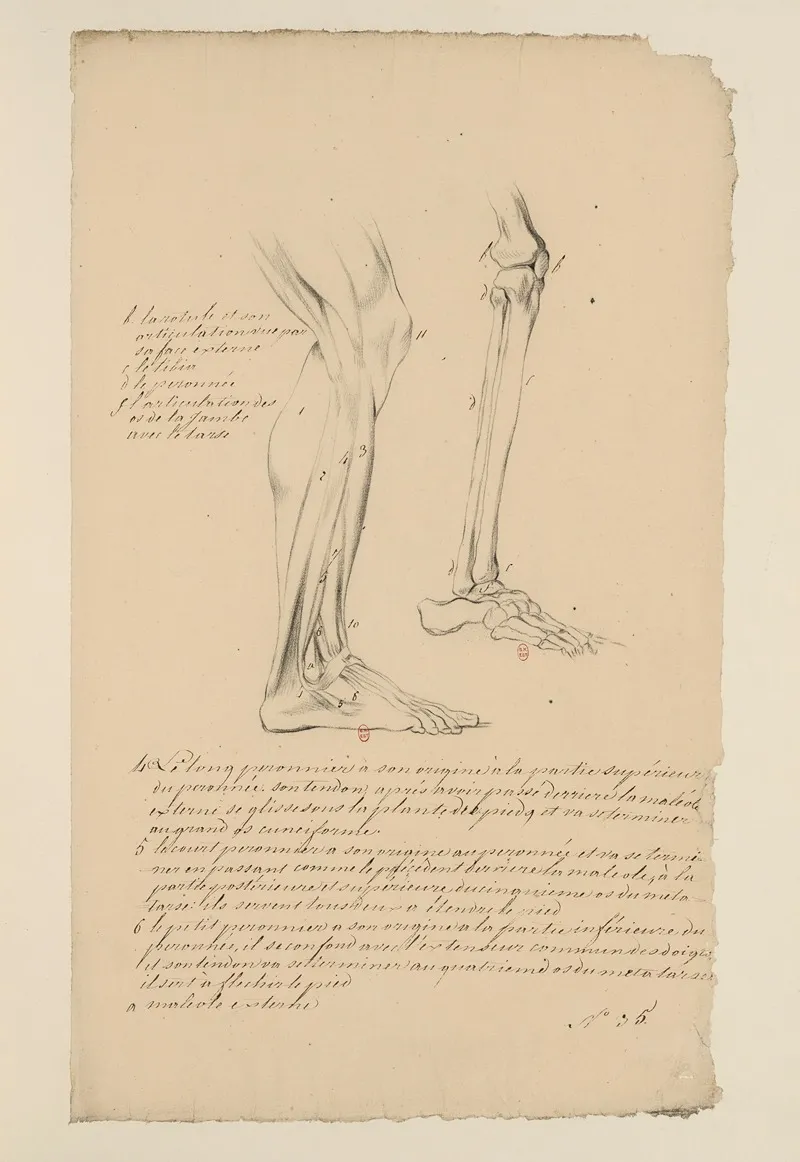 b. la rotule et son
articulation vue par
sa face externe
c le tibia
d le peronnée
f l'articulation des
os de la Jambe
avec le tarse
b
b
d
11
1
c
3
4
2
d
d
c
f
10
6
a
5
8
4 Le long peronnier a son origine a la partie supérieur
du peronnée. son tendon, après avoir passé derriere la maléole
externe se glisse sous la plante des pieds et va se terminer
au grand os cuneiforme.
5 le court peronnier a son origine au peronnée et va se termi-
ner en passant comme le précédent derriere la maleole, à la
partie postérieure et supérieure du cinquieme os du meta
tarse: ils servent tous deux a étendre le pied
6 le petit peronnier a son origine a la partie inférieure du
peronnée, il se confond avec l'extenseur commun des doigts
et son tendon va se terminer au quatrieme os du meta tarse
il sert à flechir le pied
a maleole externe
N° 35.